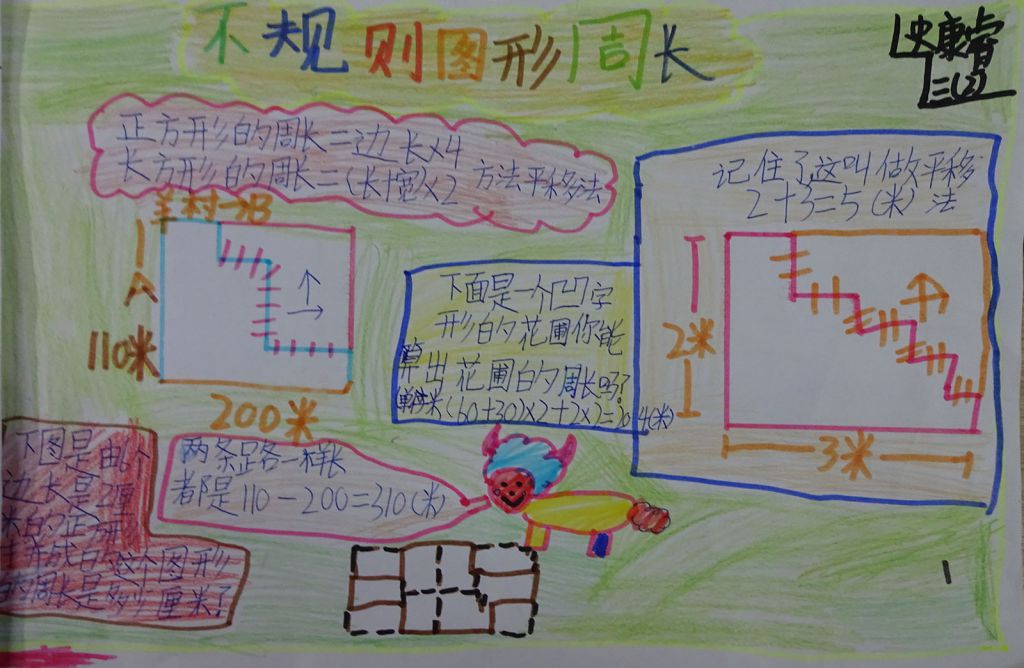 不规则图形周长
央康睿
三(2)
正方形的周长=边长×4
长方形的周长=(长+宽)×2 方法平移法
羊村→B
A
110米
200米
下面是一个凹字
形的花圃你能
算出花圃的周长吗?
单位米(60+30)×2+2×2=204(米)
记住了这叫做平移
2+3=5(米)法
2米
3米
两条路一样长
都是110-200=310(米)
下图是由6个
边长是2厘
米的正方形
拼成的,这个图形
的周长是多少厘米?